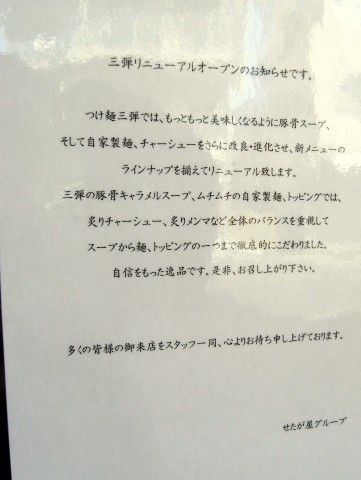 三弾リニューアルオープンのお知らせです。
つけ麺三弾では、もっともっと美味しくなるように豚骨スープ、
そして自家製麺、チャーシューをさらに改良・進化させ、新メニューの
ラインナップを揃えてリニューアル致します。
三弾の豚骨キャラメルスープ、ムチムチの自家製麺、トッピングでは、
炙りチャーシュー、炙りメンマなど全体のバランスを重視して
スープから麺、トッピングの一つまで徹底的にこだわりました。
自信をもった逸品です。是非、お召し上がり下さい。
多くの皆様の御来店をスタッフ一同、心よりお待ち申し上げております。
せたが屋グループ